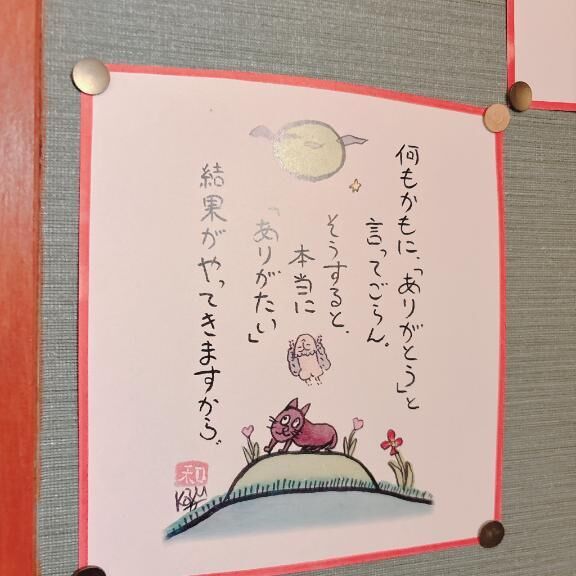 何もかもに、「ありがとう」と
言ってごらん。
そうすると、
本当に
「ありがたい」
結果がやってきますから。
和